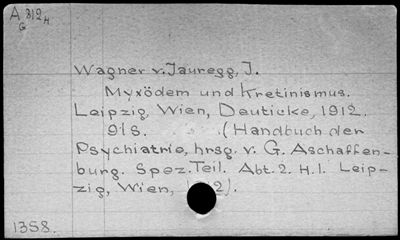 A 312 H
G
Wagner v. Jauregg, J.
Myxödem und Kretinismus.
Leipzig, Wien, Deuticke, 1912.
91 S. (Handbuch der
Psychiatrie, hrsg. v. G. Aschaffen-
burg. Spez. Teil. Abt. 2. H. 1. Leip-
zig, Wien,
1358.